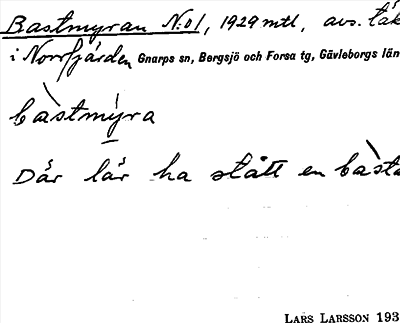 Bastmyran N:o 1, 1929 mtl, avs. tåk
i Norrfjärden Gnarps sn, Bergsjö och Forsa tg, Gävleborgs län
bàstmy̌ra
Där lär ha stått en bàsta
LARS LARSSON 193